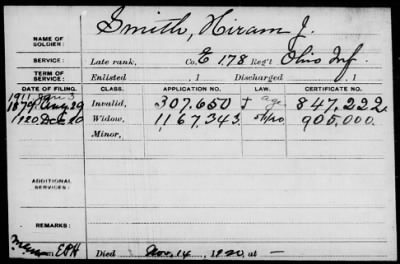 NAME OF SOLDIER: Smith, Hiram J.
SERVICE: Late rank, Co. E 178 Reg't Ohio Inf.
TERM OF SERVICE: Enlisted , 1 Discharged , 1
DATE OF FILING. CLASS. APPLICATION NO. LAW. CERTIFICATE NO.
1911 Jan 3
1879 Aug 29 Invalid, 307.650 age 847.222.
1920 Dec 20 Widow, 1,167,343 905,000.
Minor,
ADDITIONAL SERVICES:
REMARKS:
Died Nov. 14, 1920, at —